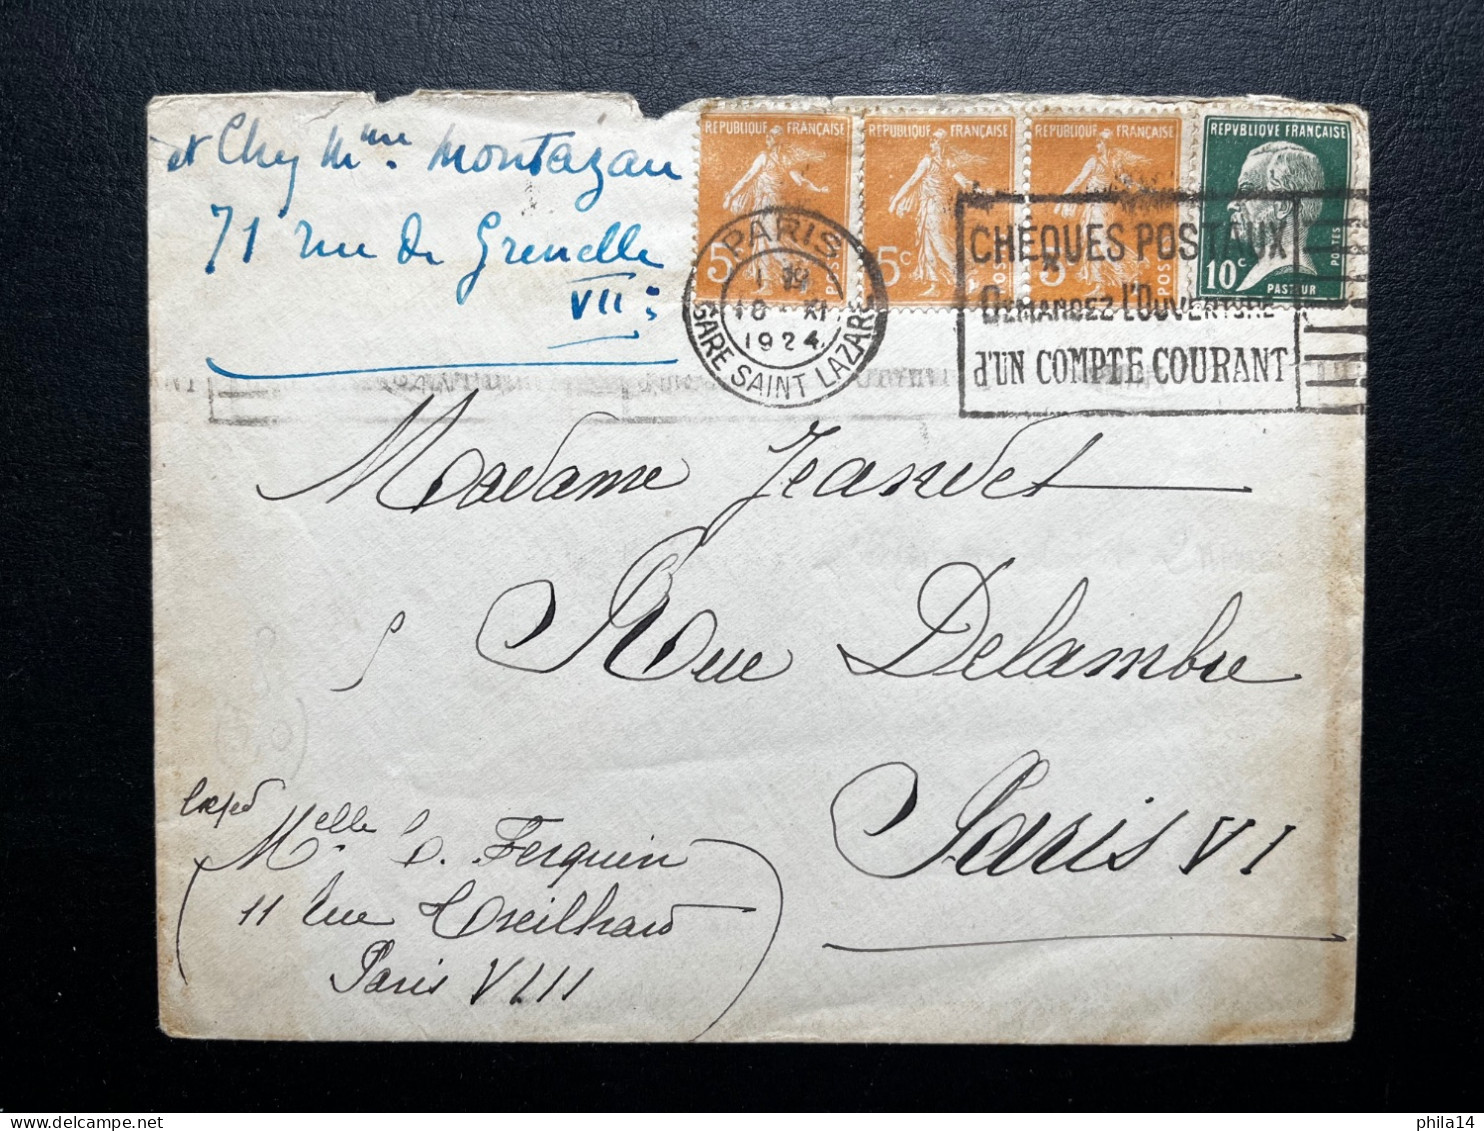 et Chez Mme. Montazau
71 rue de Grenelle
VII:
REPUBLIQUE FRANÇAISE
5c
POSTES
REPUBLIQUE FRANÇAISE
5c
POSTES
REPUBLIQUE FRANÇAISE
5c
POSTES
REPVBLIQVE FRANÇAISE
10c
POSTES
PASTEUR
PARIS
18 XI
1924
GARE SAINT LAZARE
CHÈQUES POSTAUX
DEMANDEZ L'OUVERTURE
d'UN COMPTE COURANT
Madame Jeandet
5 Rue Delambre
Paris VI
Melle
11 rue Treilhard
Paris VIII
phila14